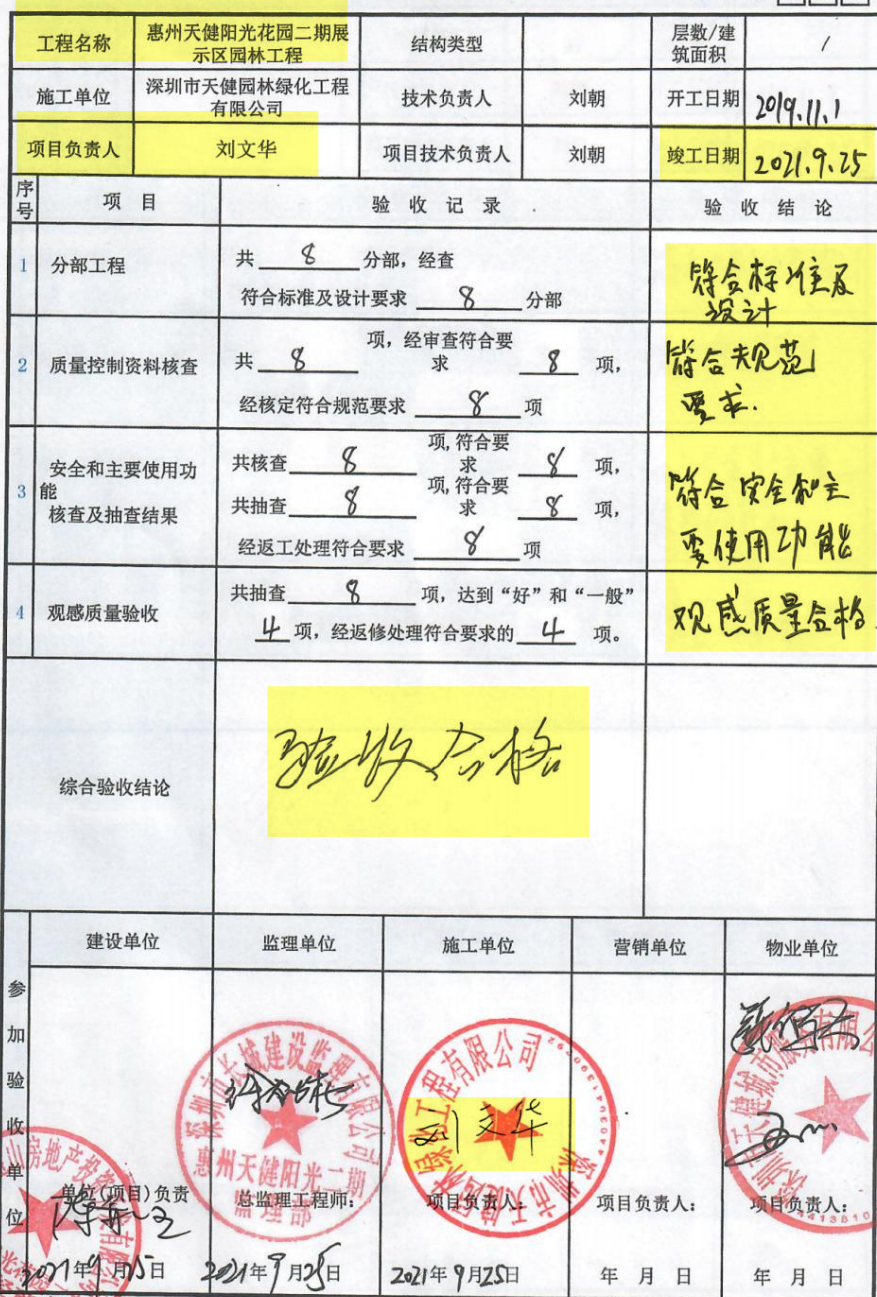 工程名称 惠州天健阳光花园二期展示区园林工程 结构类型 层数/建筑面积 /
施工单位 深圳市天健园林绿化工程有限公司 技术负责人 刘朝 开工日期 2019.11.1
项目负责人 刘文华 项目技术负责人 刘朝 竣工日期 2021.9.25
序号 项 目 验 收 记 录 验 收 结 论
1 分部工程 共 8 分部，经查
符合标准及设计要求 8 分部
符合标准及
设计
2 质量控制资料核查 共 8 项，经审查符合要求 8 项，
经核定符合规范要求 8 项
符合规范
要求.
3 安全和主要使用功能
核查及抽查结果
共核查 8 项,符合要求 8 项，
共抽查 8 项,符合要求 8 项，
经返工处理符合要求 8 项
符合安全和主
要使用功能
4 观感质量验收 共抽查 8 项，达到“好”和“一般”
4 项，经返修处理符合要求的 4 项。
观感质量合格.
综合验收结论 验收合格
参加验收单位
建设单位 监理单位 施工单位 营销单位 物业单位
深圳市长城建设监理有限公司
惠州天健阳光二期
监理部
刘文华
单位(项目)负责 总监理工程师: 项目负责人: 项目负责人: 项目负责人:
2021年9月25日 2021年9月25日 2021年9月25日 年 月 日 年 月 日